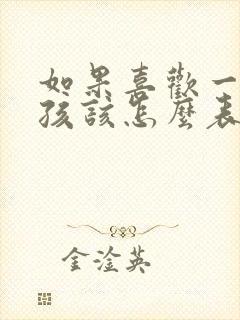 如果喜歡一
孩該怎麼表
金淦英